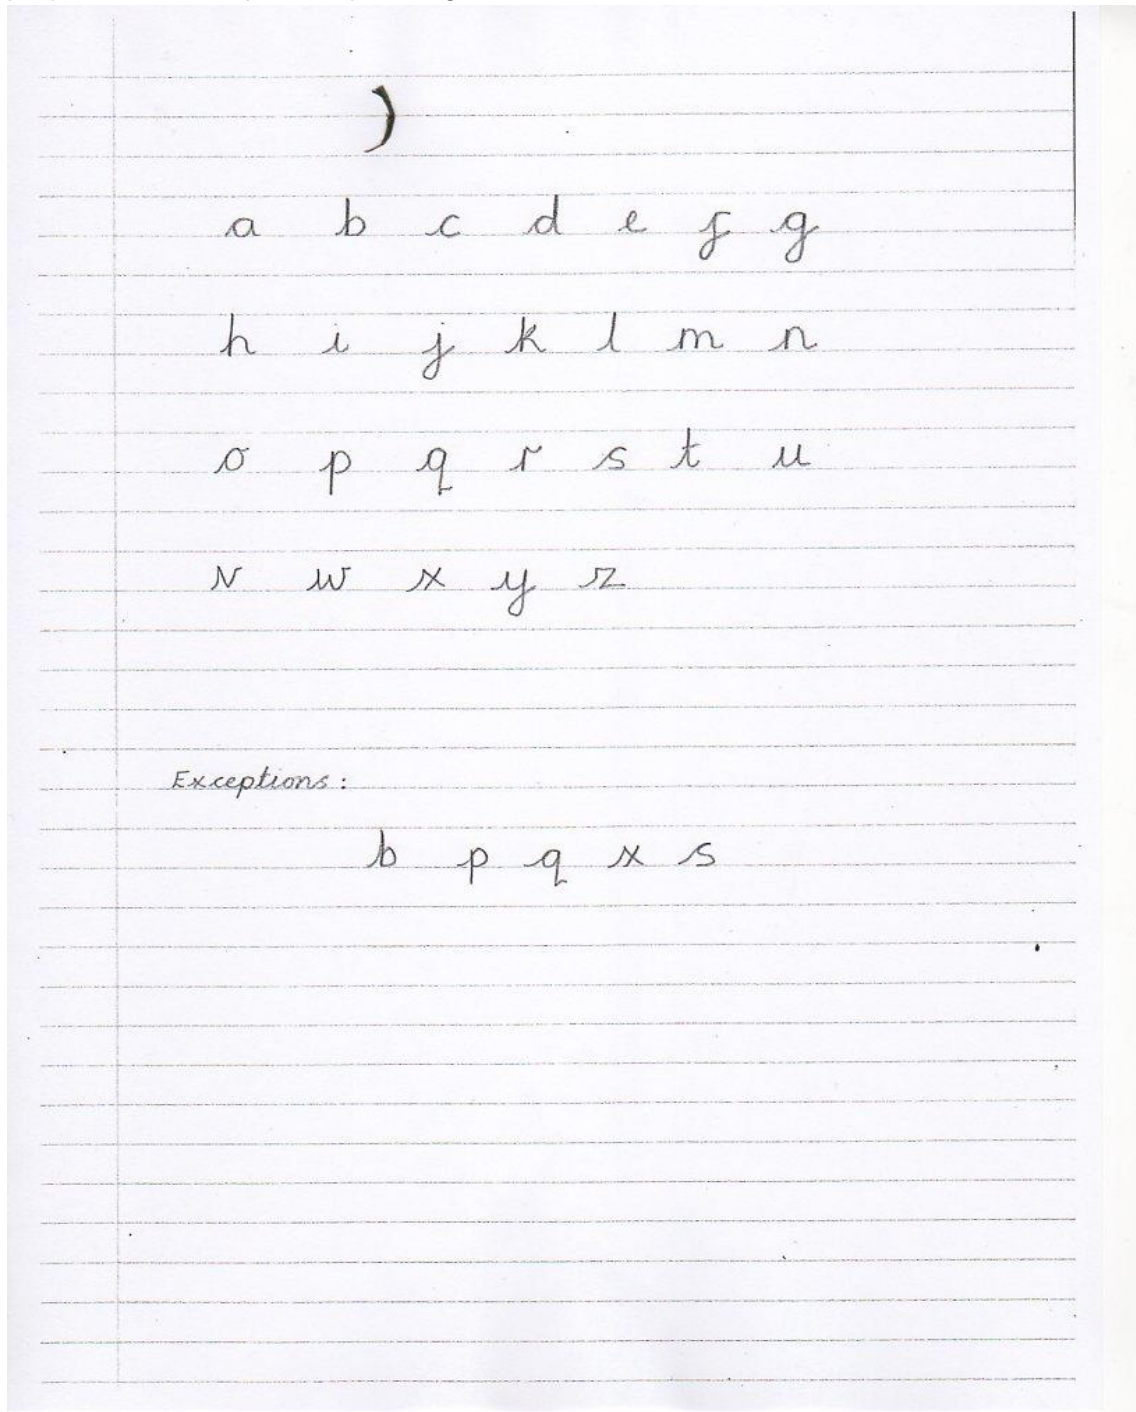 )
a b c d e f g
h i j k l m n
o p q r s t u
v w x y z
Exceptions:
b p q x s